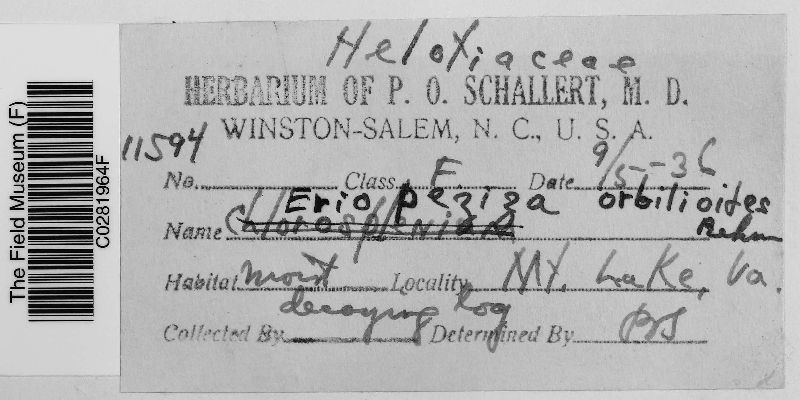 Helotiaceae
HERBARIUM OF P. O. SCHALLERT, M. D.
WINSTON-SALEM, N. C., U. S. A.
11594
No. Class. F. Date 9/5-36
Erio peziza orbilioides
Name Chlorosplenium Rehm
Habitat moist Locality Mt. Lake, Va.
decaying log
Collected By Determined By POS
The Field Museum (F)
C0281964F